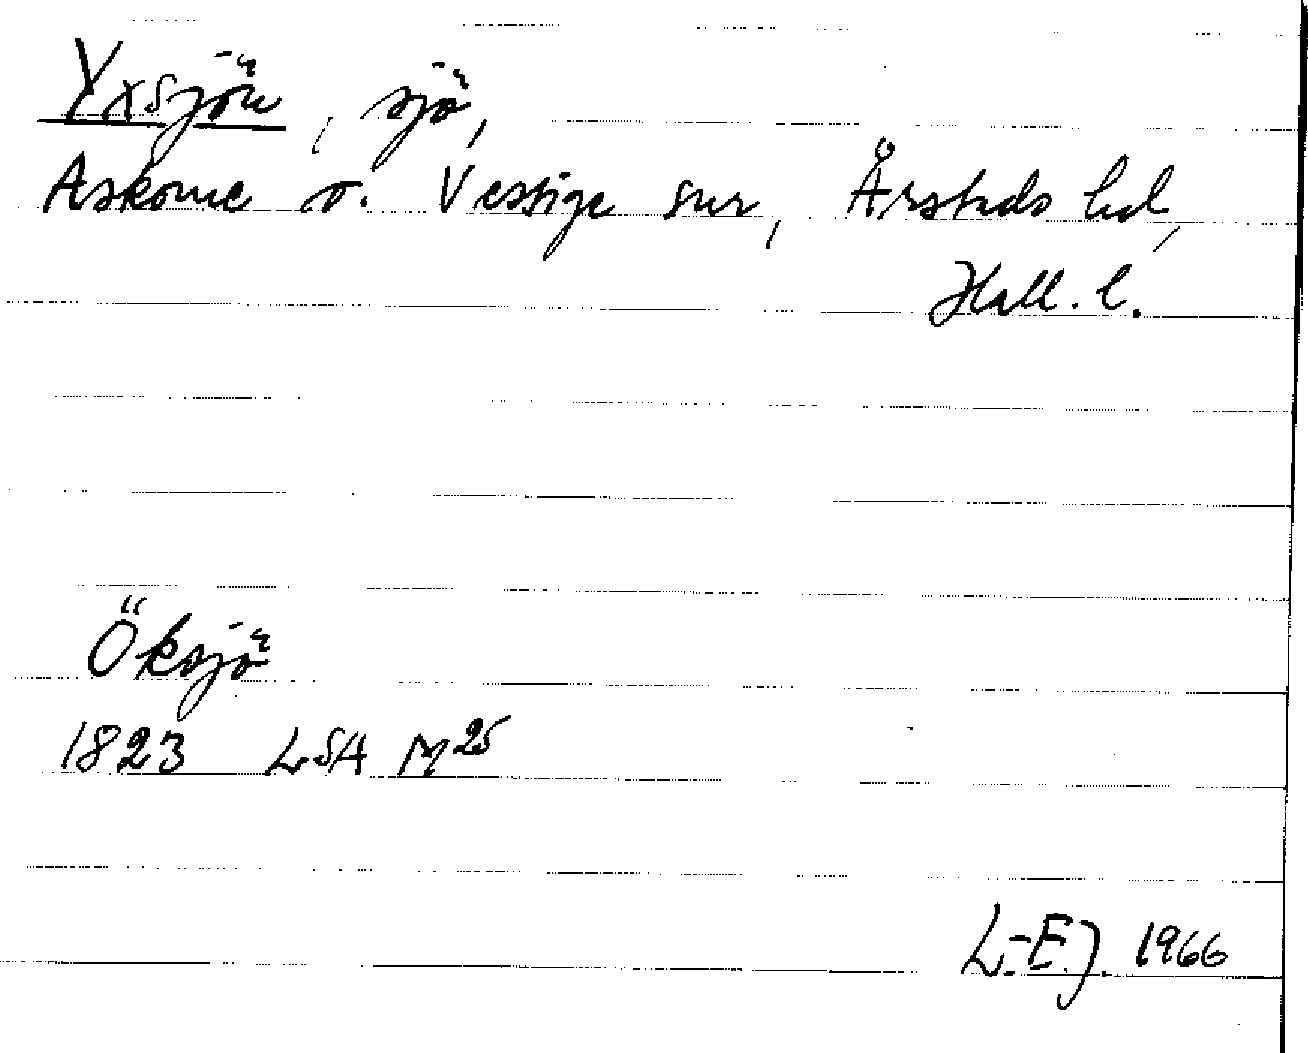 Yxsjön, sjö,
Askome o. Vessige snr, Årstads hd,
Hall. l.
Öksjö
1823 LSA M25
L.-E.J. 1966